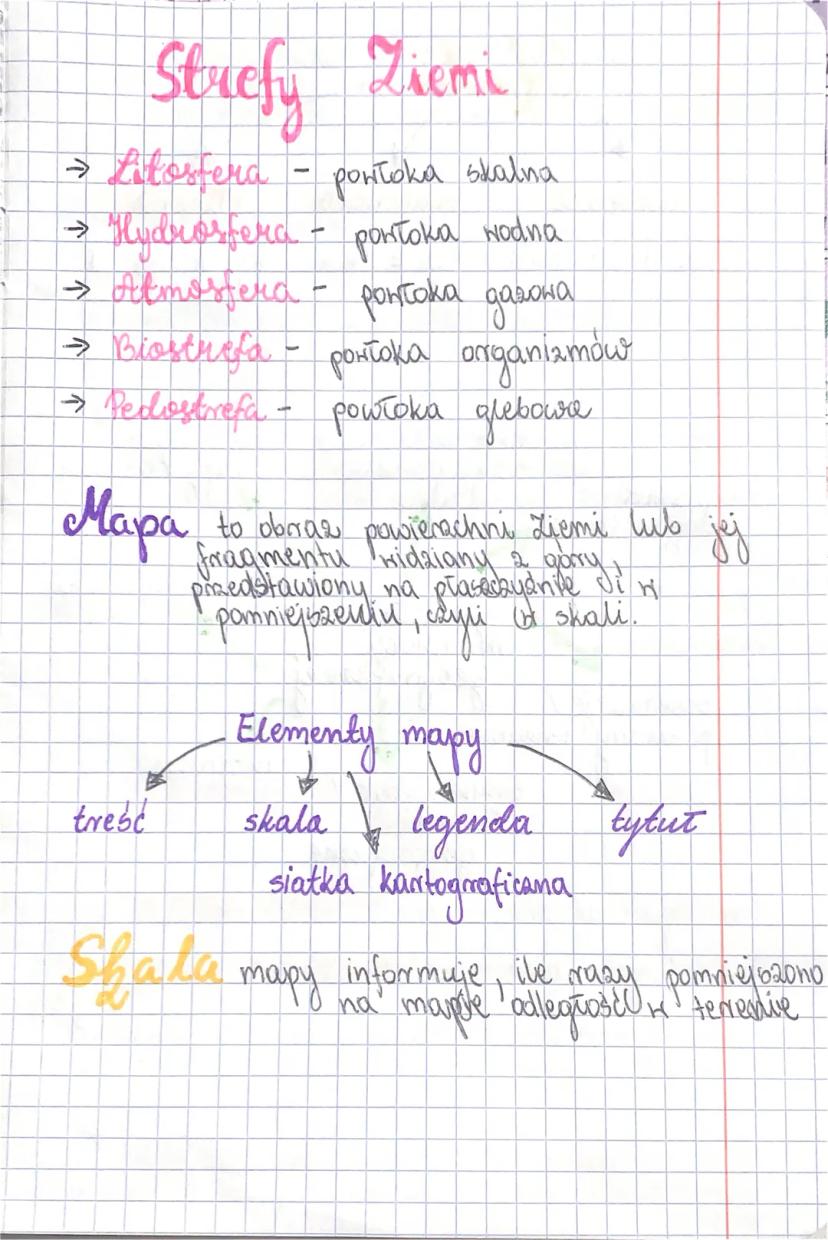 Strefy Ziemi
→ Litosfera - powłoka skalna
→ Hydrosfera - powłoka wodna
→ Atmosfera - powłoka gazowa
→ Biostrefa - powłoka organizmów
→ Pedostrefa - powłoka glebowa
Mapa to obraz powierzchni Ziemi lub jej
fragmentu widziany z góry,
przedstawiony na płaszczyźnie i w
pomniejszeniu, czyli w skali.
Elementy mapy
treść skala legenda tytuł
siatka kartograficzna
Skala mapy informuje, ile razy pomniejszono
na mapie odległość w terenie